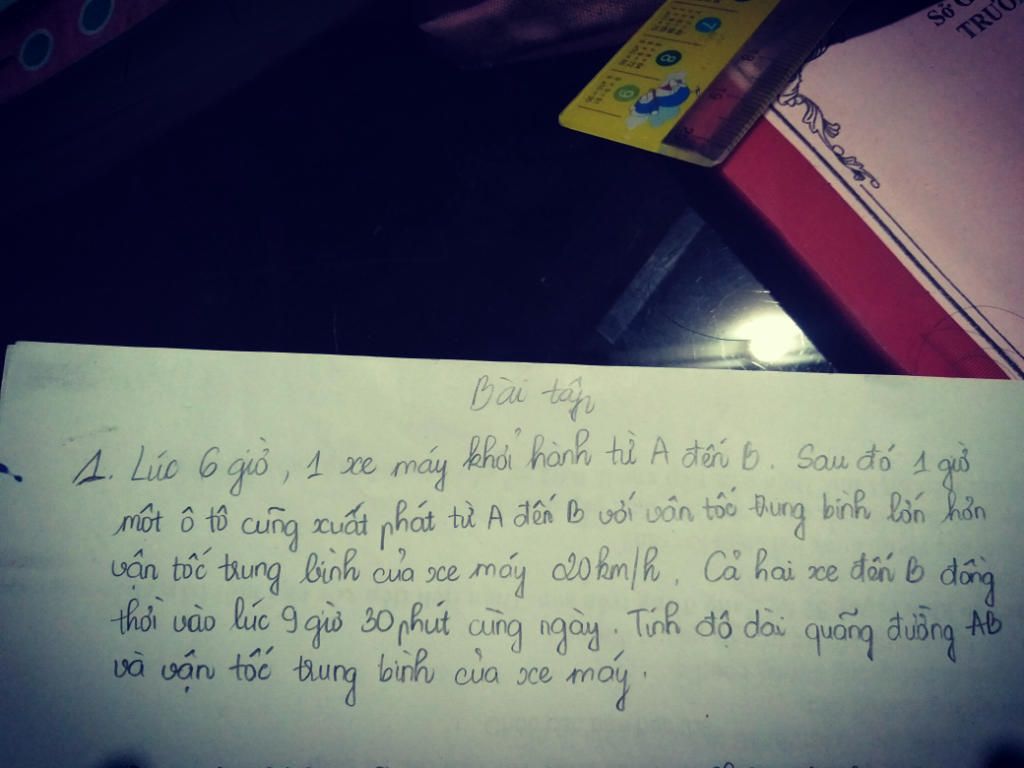 Sở G
TRƯỜ
7
8
9
Bài tập
1. Lúc 6 giờ, 1 xe máy khởi hành từ A đến B. Sau đó 1 giờ
một ô tô cũng xuất phát từ A đến B với vận tốc trung bình lớn hơn
vận tốc trung bình của xe máy 20km/h. Cả hai xe đến B đồng
thời vào lúc 9 giờ 30 phút cùng ngày. Tính độ dài quãng đường AB
và vận tốc trung bình của xe máy.